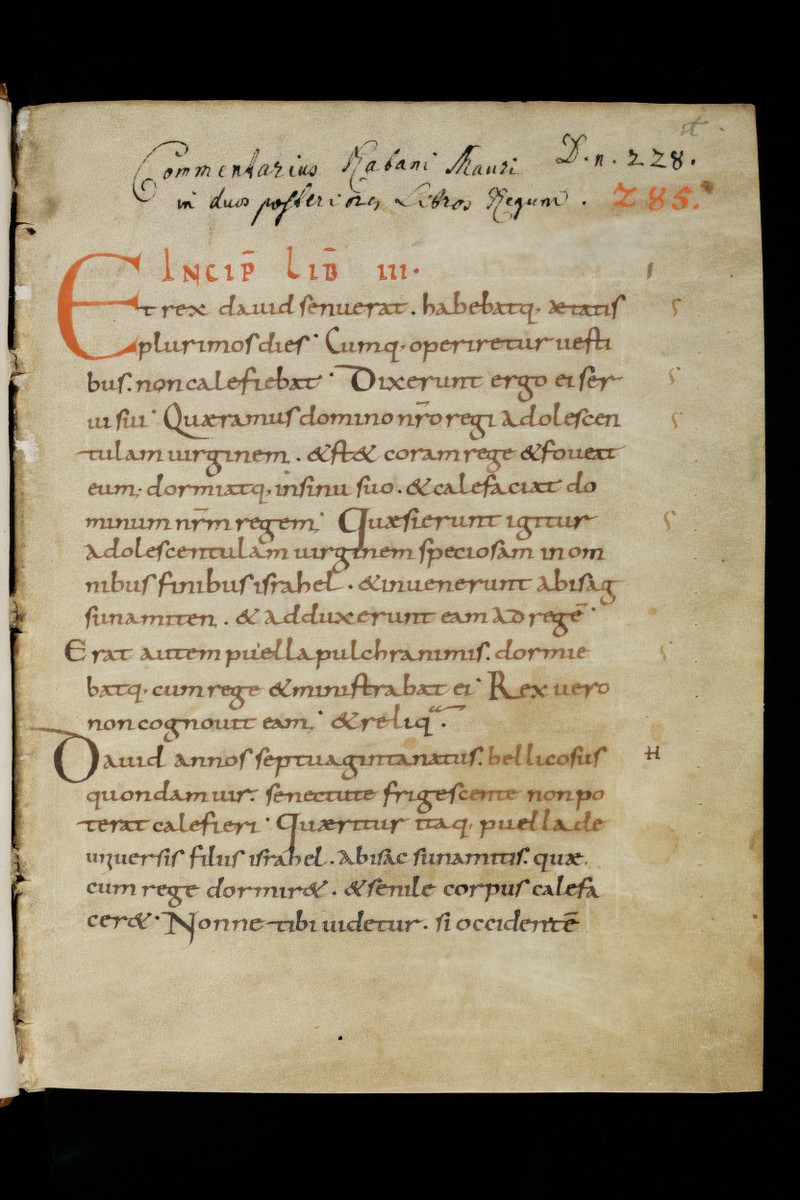 Commentarius Rabani Mauri D. n. 228.
in duos posteriores Libros Regum. 285.
INCIP̄ LIB̄ III·
Et rex dauid senuerat. habebatq· ætatis
plurimos dies· Cumq· operiretur uesti
bus. non calefiebat· Dixerunt ergo ei ser
ui sui· Quæramus domino nr̄o regi adolescen
tulam uirginem. &st& coram rege &foueat
eum; dormiatq· in sinu suo. &calefaciat do
minum nr̄m regem; Quæsierunt igitur
adolescentulam uirginem speciosam in om
nibus finibus israhel. &inuenerunt abisag
sunamiten. & adduxerunt eam ad regē·
Erat autem puella pulchra nimis. dormie
batq· cum rege &ministrabat ei· Rex uero
non cognouit eam; &reliq·
Dauid annos septuaginta natus. bellicosus
quondam uir. senectute frigescente non po
terat calefieri· Quæritur itaq· puella de
uniuersis filiis israhel. abisac sunamitis. quæ
cum rege dormir&. &senile corpus calefa
cer&· Nonne tibi uidetur. si occidentē